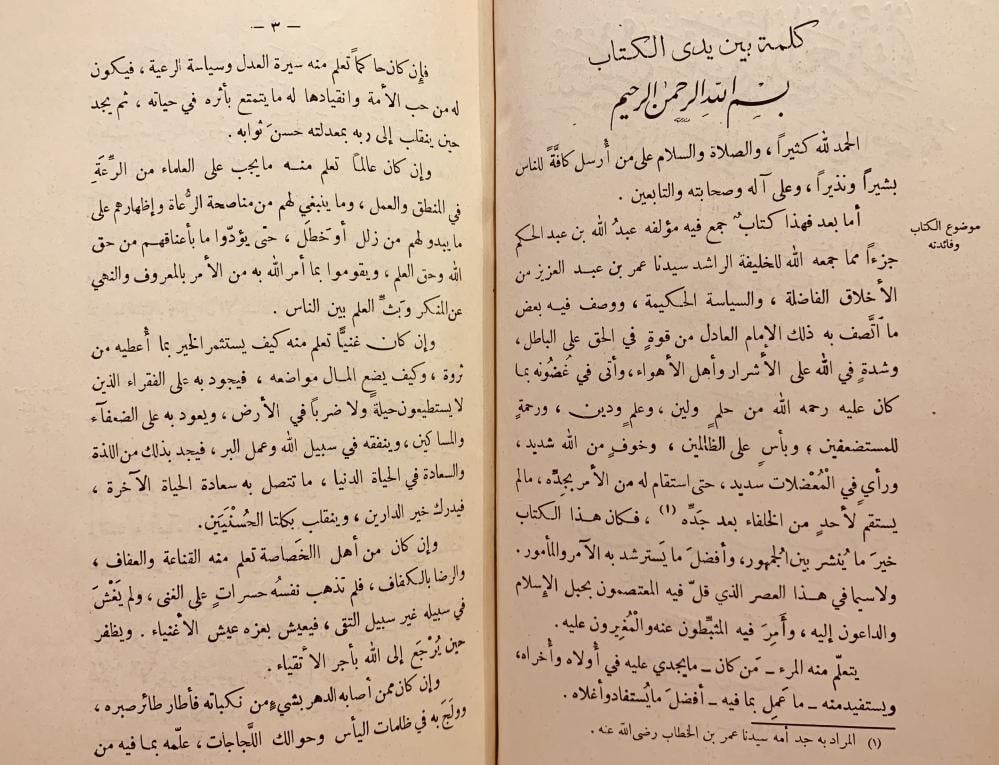 كلمة بين يدى الكتاب
بسم الله الرحمن الرحيم
الحمد لله كثيراً ، والصلاة والسلام على من أُرسل كافَّةً للناس
بشيراً ونذيراً ، وعلى آله وصحابته والتابعين .
موضوع الكتاب
وفائدته
أما بعد فهذا كتابٌ جمع فيه مؤلفه عبدُ الله بن عبد الحكم
جزءاً مما جمعه الله للخليفة الراشد سيدنا عمر بن عبد العزيز من
الأخلاق الفاضلة ، والسياسة الحكيمة ، ووصف فيه بعض
ما اتَّصف به ذلك الإمام العادل من قوةٍ في الحق على الباطل،
وشدةٍ في الله على الأشرار وأهل الأهواء، وأتى في غُضُونه بما
كان عليه رحمه الله من حلمٍ ولين ، وعلمٍ ودين ، ورحمةٍ
للمستضعفين ؛ وبأسٍ على الظالمين ، وخوفٍ من الله شديد ،
ورأيٍ في الْمُعْضلات سديد ، حتى استقام له من الأمر بجِدِّه ، مالم
يستقم لأحدٍ من الخلفاء بعد جَدِّه (١) ، فكان هذا الكتاب
خيرَ ما يُنشر بين الجمهور، وأفضلَ ما يَسترشد به الآمر والمأمور .
ولاسيما في هذا العصر الذي قلّ فيه المعتصمون بحبل الإسلام
والداعون إليه ، وأَمِرَ فيه المثبِّطون عنه والْمُغِيرون عليه .
يتعلّم منه المرء – مَن كان – مايجدي عليه في أُولاه وأُخراه،
ويستفيد منه – ما عَمِل بما فيه – أفضلَ مايُستفاد وأغلاه .
(١) المراد به جد أمه سيدنا عمر بن الخطاب رضى الله عنه .
— ٣ —
فإن كان حاكماً تعلم منه سيرة العدل وسياسة الرعية ، فيكون
له من حب الأمة وانقيادها له ما يتمتع بأثره في حياته ، ثم يجد
حين ينقلب إلى ربه بمعدلته حسنَ ثوابه .
وإن كان عالماً تعلم منه مايجب على العلماء من الرِّعَةِ
في المنطق والعمل ، وما ينبغي لهم من مناصحة الرُّعاة وإظهارهم على
ما يبدو لهم من زلل أو خَطَل ، حتى يؤدّوا ما بأعناقهم من حق
الله وحق العلم ، ويقوموا بما أمر الله به من الأمر بالمعروف والنهي
عن المنكر وبَثِّ العلم بين الناس .
وإن كان غنيًّا تعلم منه كيف يستثمر الخير بما أُعطيه من
ثروة ، وكيف يضع المال مواضعه ، فيجود به على الفقراء الذين
لايستطيعون حيلةً ولا ضرباً في الأرض ، ويعود به على الضعفآء
والمساكين ، وينفقه في سبيل الله وعمل البر ، فيجد بذلك من اللذة
والسعادة في الحياة الدنيا ، ما تتصل به سعادة الحياة الآخرة ،
فيدرك خير الدارين ، وينقلب بكلتا الحُسْنَيَين.
وإن كان من أهل االخَصاصة تعلم منه القناعة والعفاف ،
والرضا بالكفاف ، فلم تذهب نفسُهُ حسراتٍ على الغنى ، ولم يَغْشَ
في سبيله غير سبيل التقى ، فيعيش بعزه عيش الأغنياء . ويظفر
حين يُرْجَع إلى الله بأجر الأتقياء .
وإن كان ممن أصابه الدهر بشيءٍ من نكباته فأطار طائر صبره ،
وولَجَ به في ظلمات اليأس وحوالك اللَّجاجات ، علّمه بما فيه من